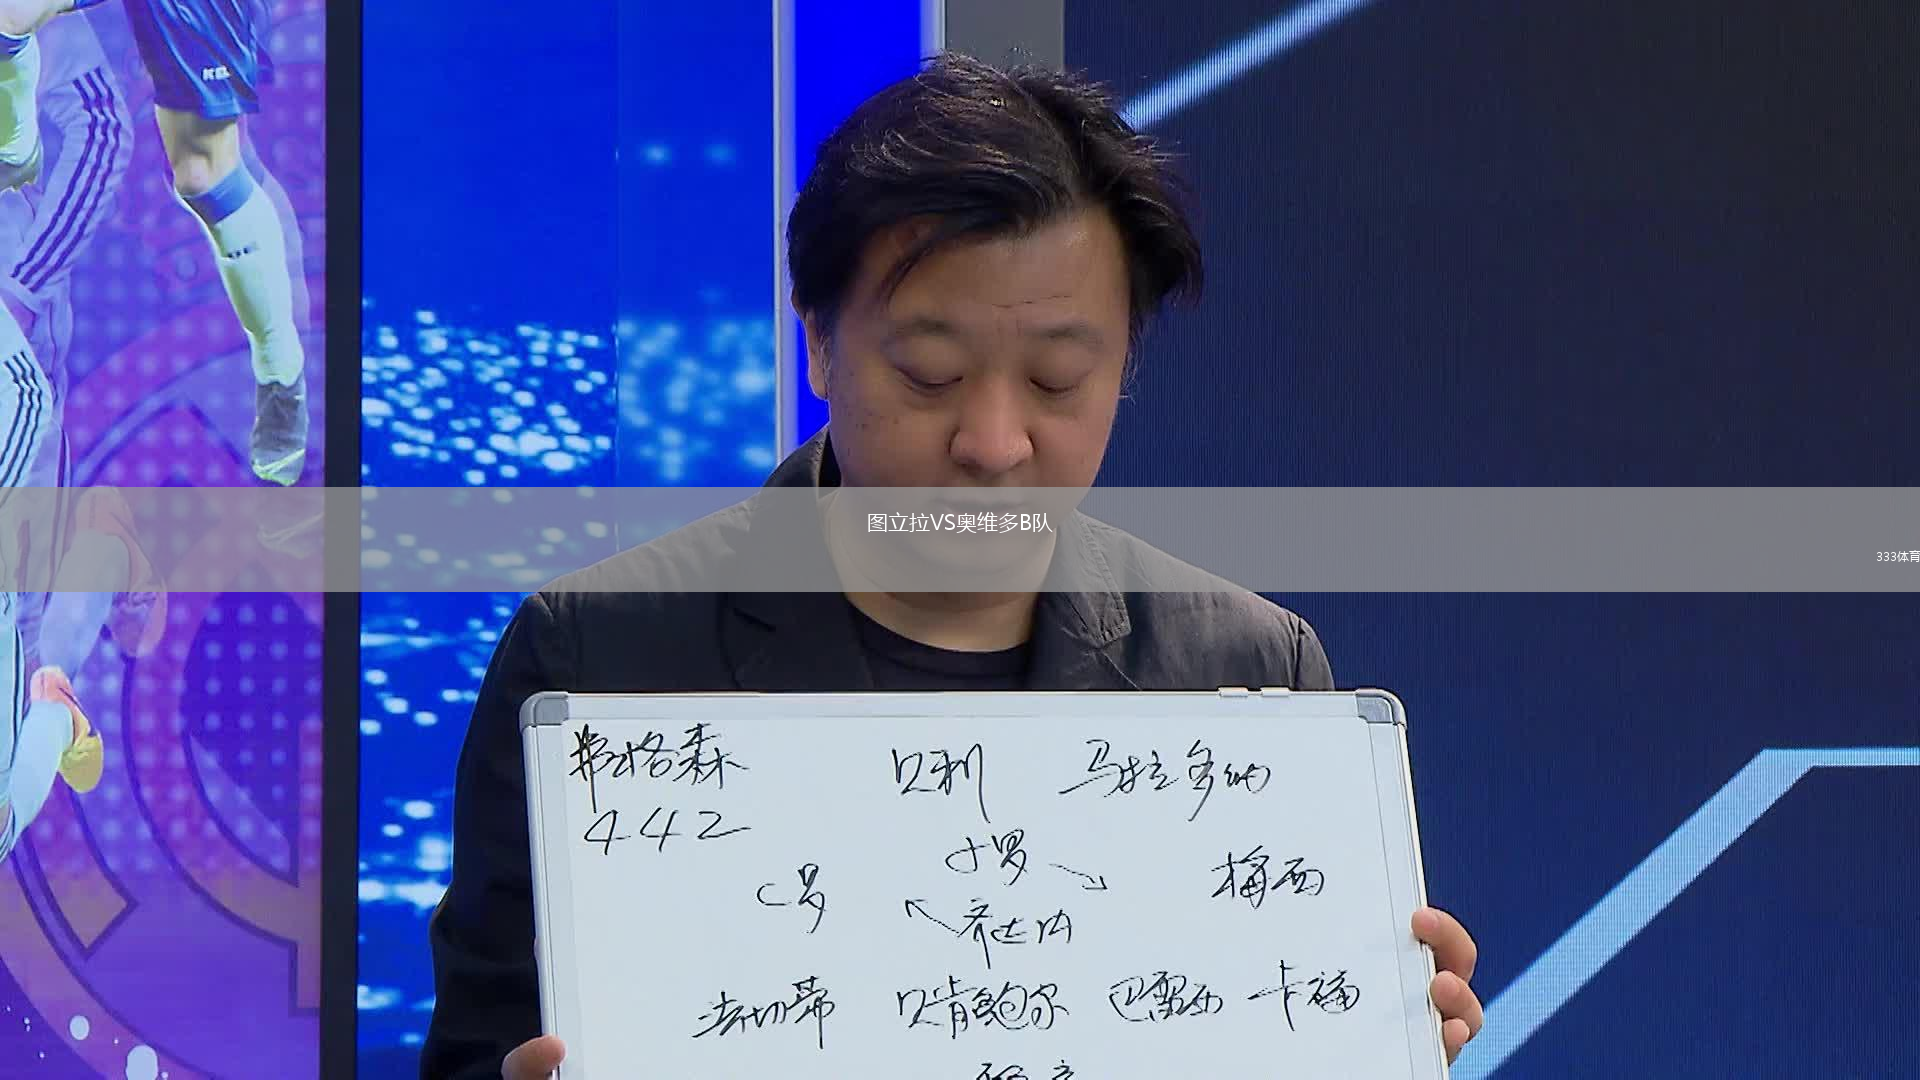 图立拉VS奥维多B队
333体育
弗格森 贝利 马拉多纳
442
小罗
C罗 梅西
齐达内
法切蒂 贝肯鲍尔 巴雷西 卡福